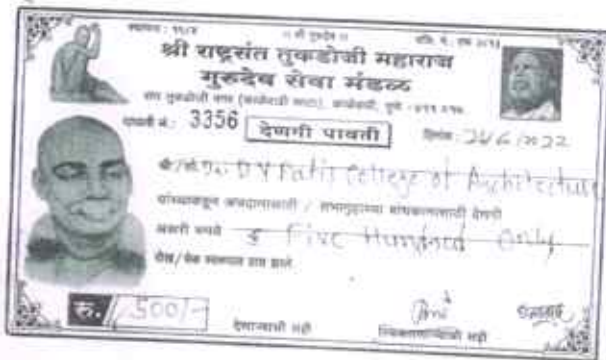 ॥ श्री गुरुदेव ॥
श्री राष्ट्रसंत तुकडोजी महाराज
गुरुदेव सेवा मंडळ
पावती नं.: 3356 देणगी पावती दिनांक: 24/6/2022
श्री/ D Y Patil College of Architecture
यांच्याकडून अन्नदानासाठी / सभागृहाच्या बांधकामासाठी देणगी
अक्षरी रुपये Five Hundred Only
रोख/चेक स्वरूपात प्राप्त झाले.
रु. 500/-
देणाऱ्याची सही स्विकारणाऱ्याची सही